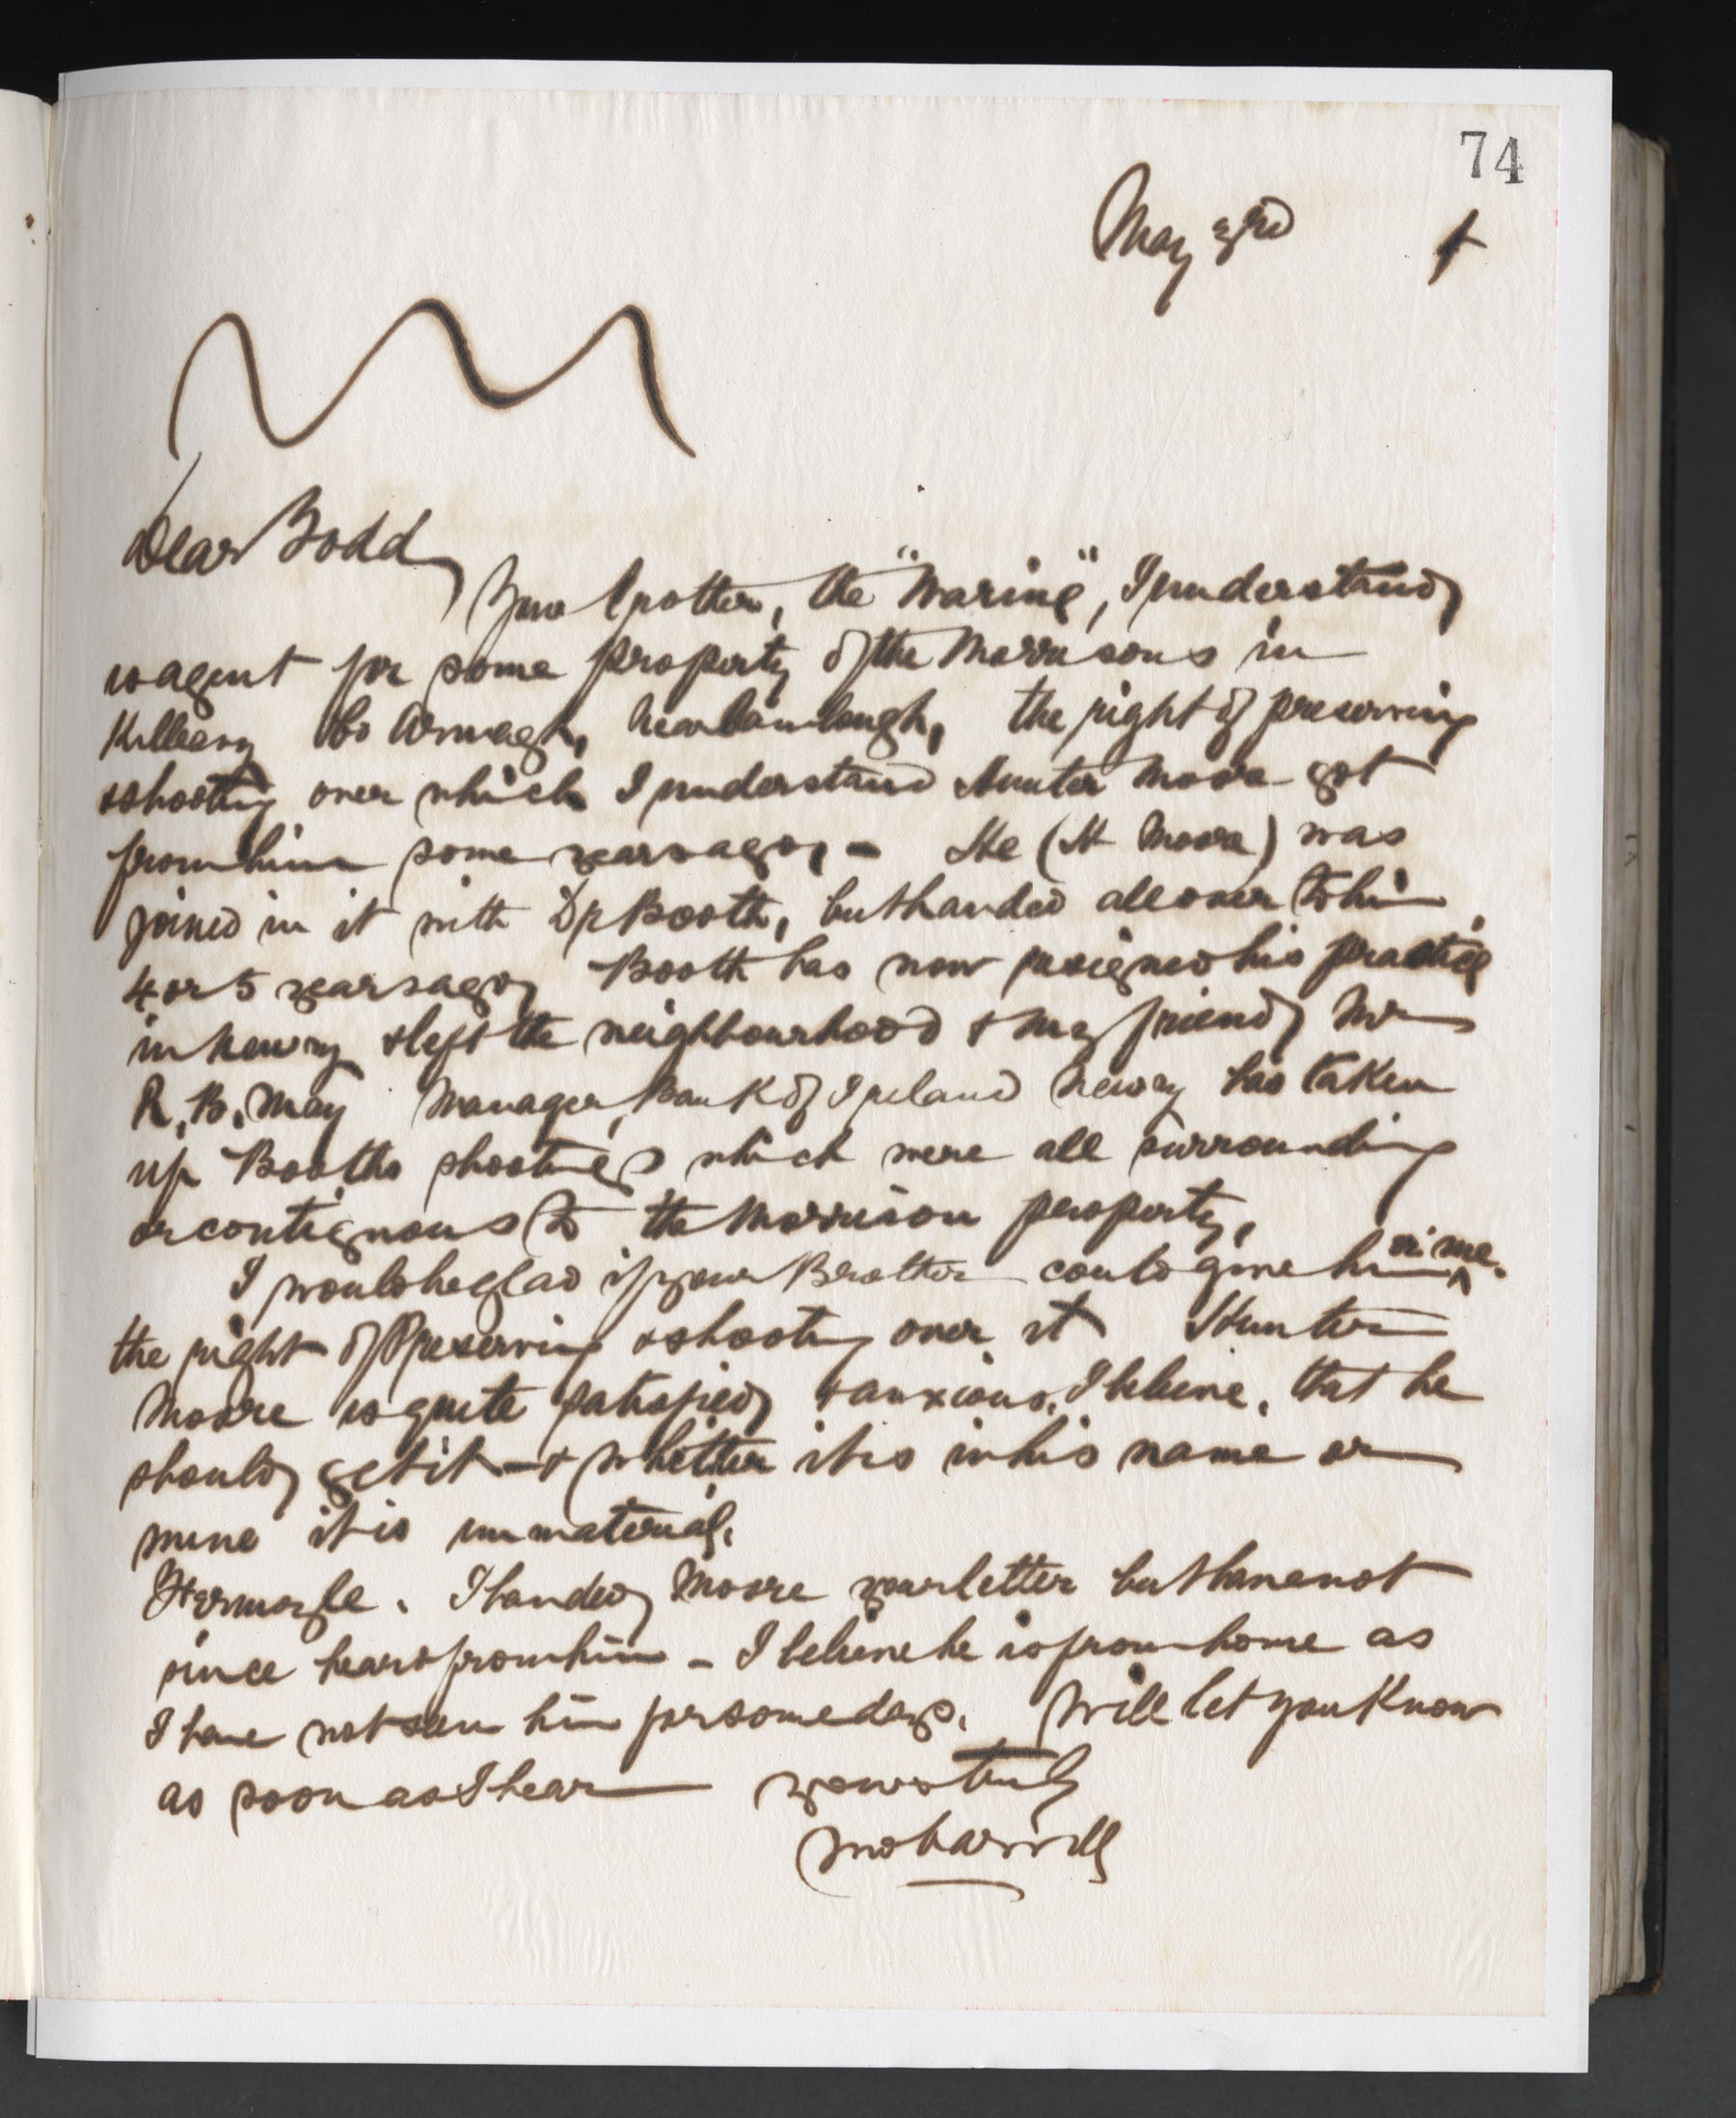 74
May 3rd 4
Dear Todd
Your brother, the "Marine", I understand
is agent for some property of the Morrisons in
Killeavy Co Armagh, near Camlough, the right of preserving
& shooting over which I understand Hunter Moore got
from him some years ago, - He (H Moore) was
joined in it with Dr Booth, but handed all over to him
4 or 5 years ago, Booth has now resigned his practice
in Newry & left the neighbourhood & my friend Mr
R. B. May Manager, Bank of Ireland Newry has taken
up Booths shootings which were all surrounding
or contiguous to the Morrison property,
I would be glad if your Brother could give him ^ or me.
the right of preserving & shooting over it Hunter
Moore is quite satisfied & anxious, I believe, that he
should get it - & whether it is in his name or
mine it is immaterial.
I handed Moore your letter but have not
since heard from him - I believe he is from home as
I have not seen him for some days. Will let you know
as soon as I hear yours truly